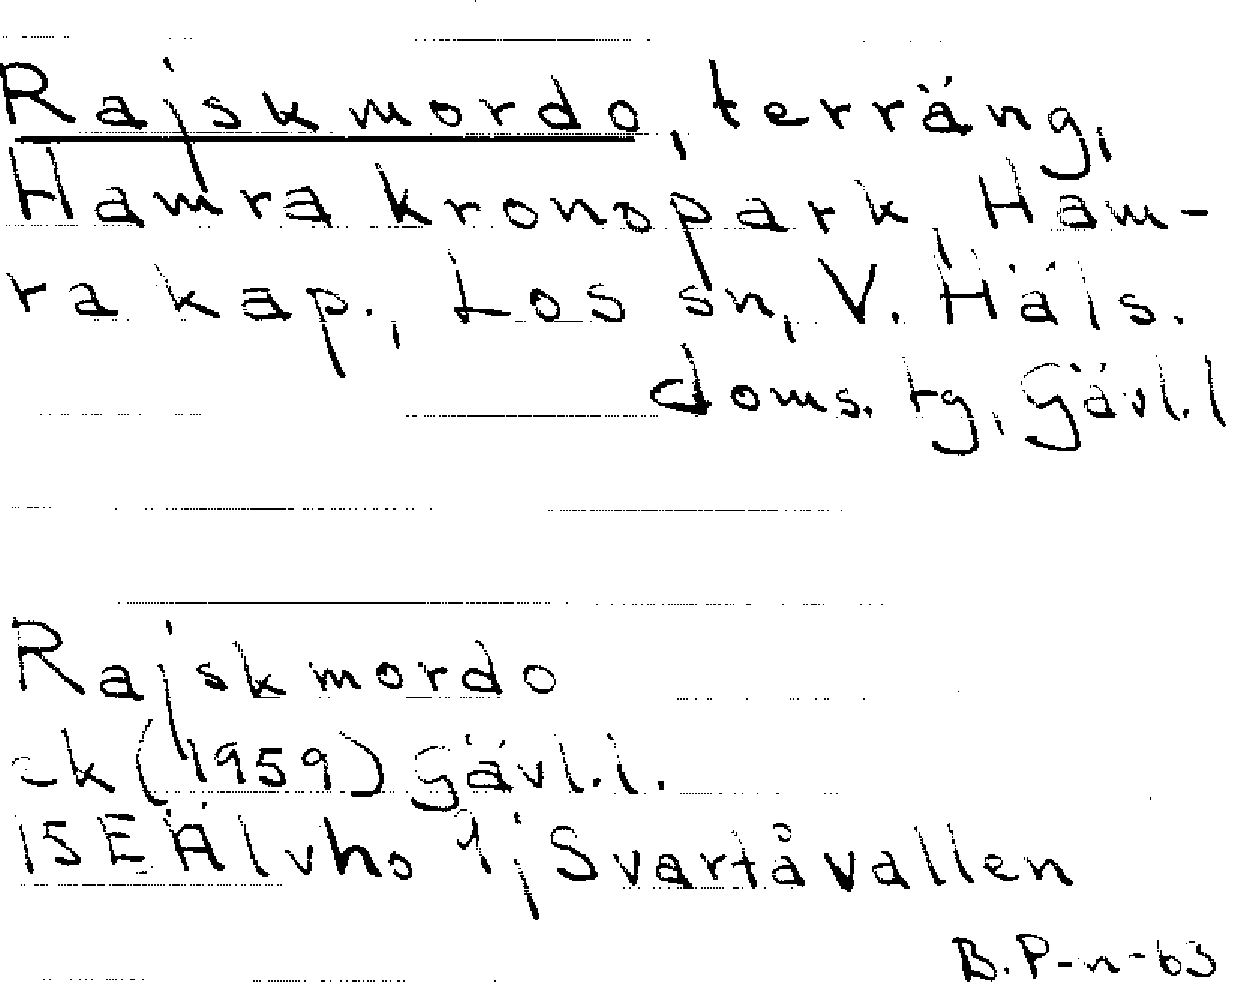 Rajskmordo, terräng,
Hamra kronopark, Ham-
ra kap., Los sn, V. Häls.
doms. tg, Gävl. l
Rajskmordo
ek (1959) Gävl. l.
15E Älvho 1j Svartåvallen
B. P-n-63